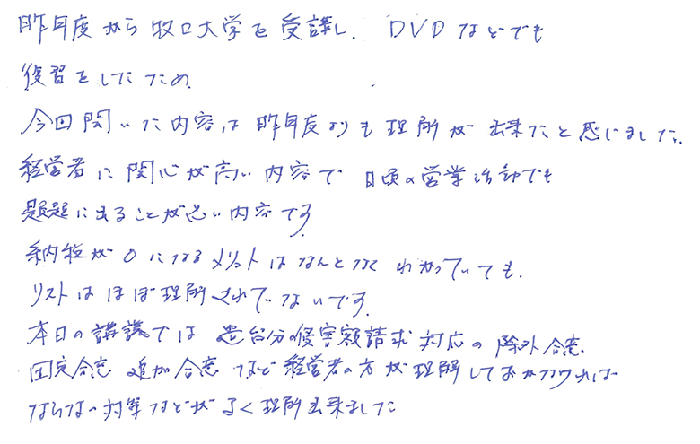 昨年度から牧口大学を受講し、DVDなどでも
復習をしたため、
今回聞いた内容は昨年度よりも理解が出来たと感じました。
経営者に関心が高い内容で日頃の営業活動でも
話題に出ることが多い内容です。
納税が0になるメリットはなんとなくわかっていても、
リストはほぼ理解されてないです。
本日の講議では遺留分侵害額請求対応の除外合意、
固定合意、追加合意など経営者の方が理解しておかなければ
ならない対策などがよく理解出来ました